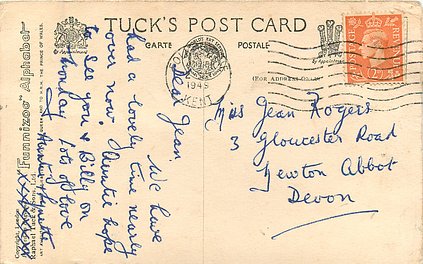 TUCK'S POST CARD
CARTE POSTALE
by Appointment
(FOR ADDRESS ONLY)
Funnizoo" Alphabet
Raphael Tuck & Sons, Ltd.
1949
KENT
POSTAGE
REVENUE
Dear Jean
We have
had a lovely time nearly
over now. Auntie hope
to see you & Billy on
Monday lots of love
Auntie
XXXXXX
Miss Jean Rogers
3 Gloucester Road
Newton Abbot
Devon